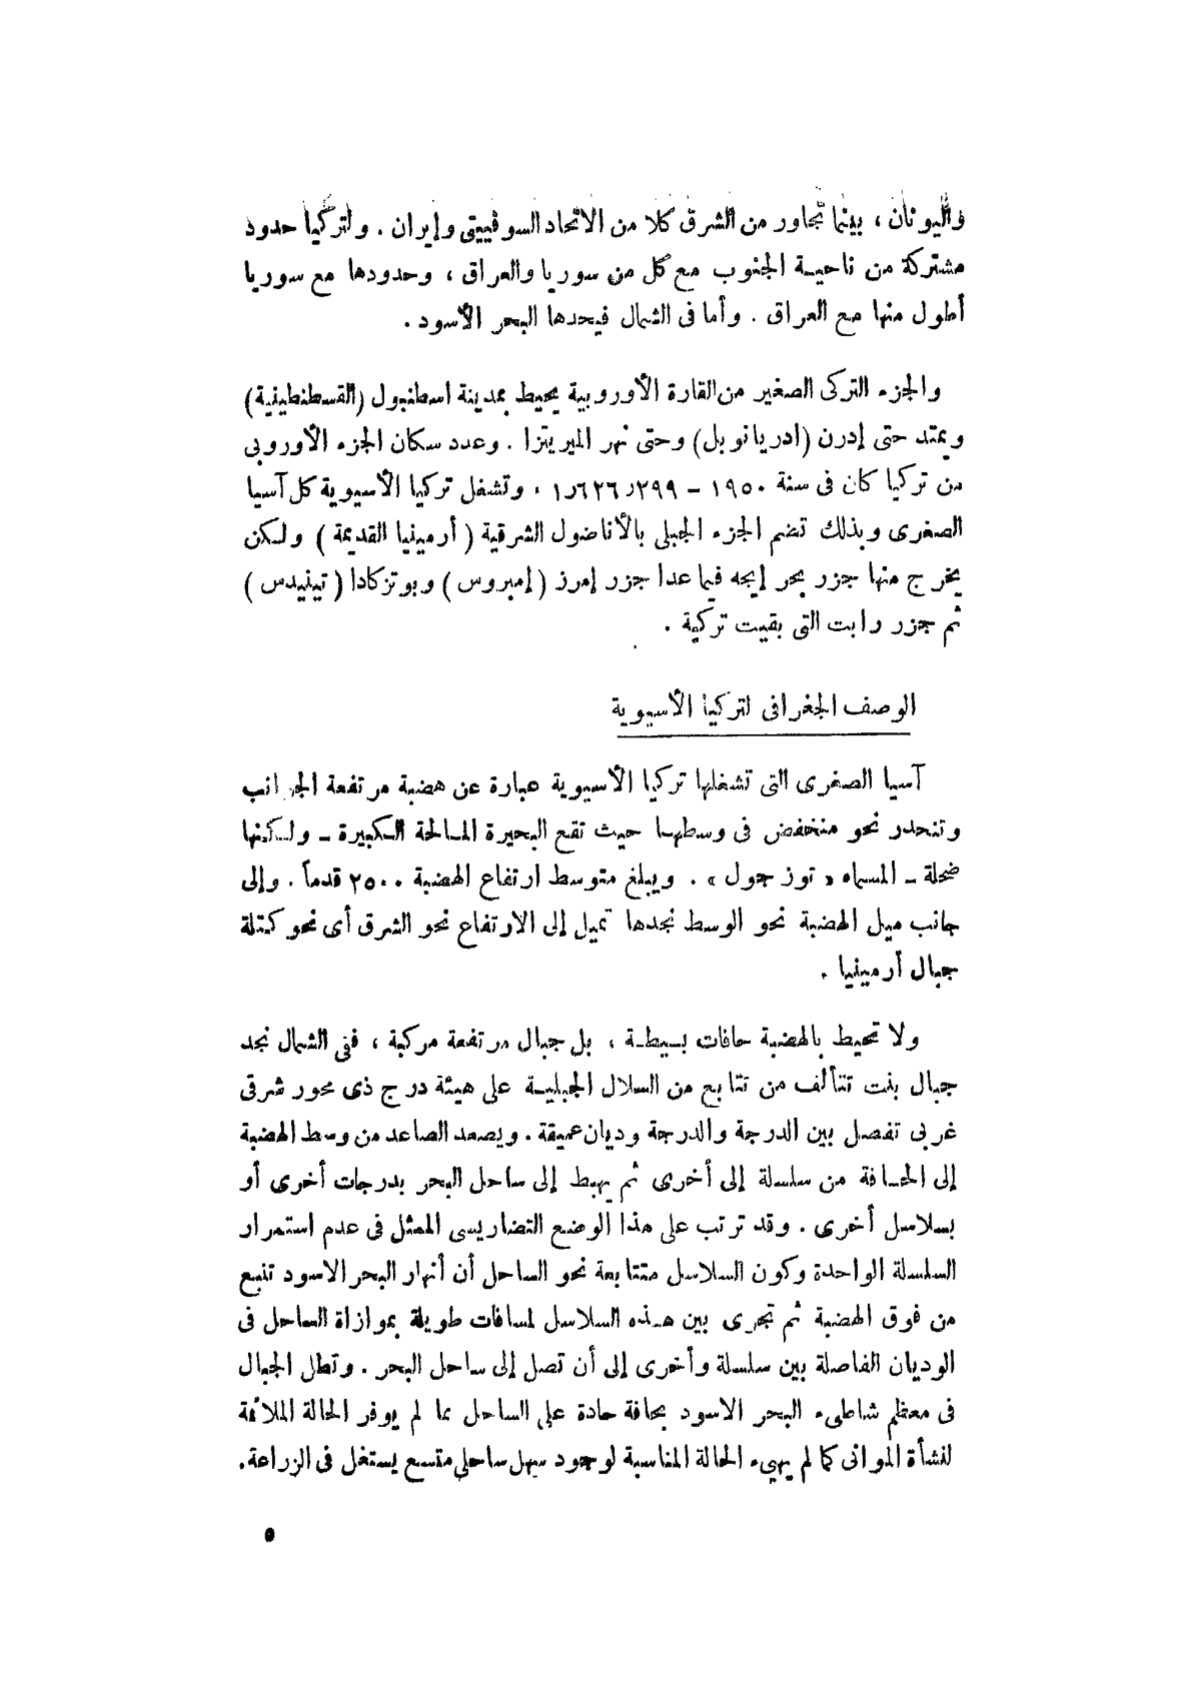 واليونان ، بينما تجاور من الشرق كلا من الاتحاد السوفييتى وإيران . ولتركيا حدود
مشتركة من ناحيـة الجنوب مع كل من سوريا والعراق ، وحدودها مع سوريا
أطول منها مع العراق . وأما فى الشمال فيحدها البحر الأسود .
والجزء التركى الصغير من القارة الأوروبية يحيط بمدينة اسطنبول (القسطنطينية)
ويمتد حتى إدرن (ادريانوبل) وحتى نهر الميريتزا . وعدد سكان الجزء الأوروبى
من تركيا كان فى سنة ١٩٥٠ – ١٫٦٢٦٫٢٩٩ ، وتشغل تركيا الأسيوية كل آسيا
الصغرى وبذلك تضم الجزء الجبلى بالأناضول الشرقية ( أرمينيا القديمة ) ولكن
يخرج منها جزر بحر إيجه فيما عدا جزر إمرز ( إمبروس ) وبوتزكادا ( تينيدس )
ثم جزر رابت التى بقيت تركية .
الوصف الجغرافى لتركيا الأسيوية
آسيا الصغرى التى تشغلها تركيا الأسيوية عبارة عن هضبة مرتفعة الجوانب
وتنحدر نحو منخفض فى وسطها حيث تقع البحيرة المالحة الكبيرة – ولكنها
ضحلة – المسماه « توز جول » . ويبلغ متوسط ارتفاع الهضبة ٢٥٠٠ قدماً . وإلى
جانب ميل الهضبة نحو الوسط نجدها تميل إلى الارتفاع نحو الشرق أى نحو كتلة
جبال أرمينيا .
ولا تحيط بالهضبة حافات بسيطة ، بل جبال مرتفعة مركبة ، ففى الشمال نجد
جبال بنت تتألف من تتابع من السلال الجبليـة على هيئة درج ذى محور شرقى
غربى تفصل بين الدرجة والدرجة وديان عميقة . ويصعد الصاعد من وسط الهضبة
إلى الحافة من سلسلة إلى أخرى ثم يهبط إلى ساحل البحر بدرجات أخرى أو
بسلاسل أخرى . وقد ترتب على هذا الوضع التضاريسى الممثل فى عدم استمرار
السلسلة الواحدة وكون السلاسل متتابعة نحو الساحل أن أنهار البحر الاسود تنبع
من فوق الهضبة ثم تجرى بين هـذه السلاسل لمسافات طويلة بموازاة الساحل فى
الوديان الفاصلة بين سلسلة وأخرى إلى أن تصل إلى ساحل البحر . وتطل الجبال
فى معظم شاطىء البحر الاسود بحافة حادة على الساحل مما لم يوفر الحالة الملائمة
لنشأة الموانى كما لم يهيىء الحالة المناسبة لوجود سهل ساحلى متسع يستغل فى الزراعة.
٥